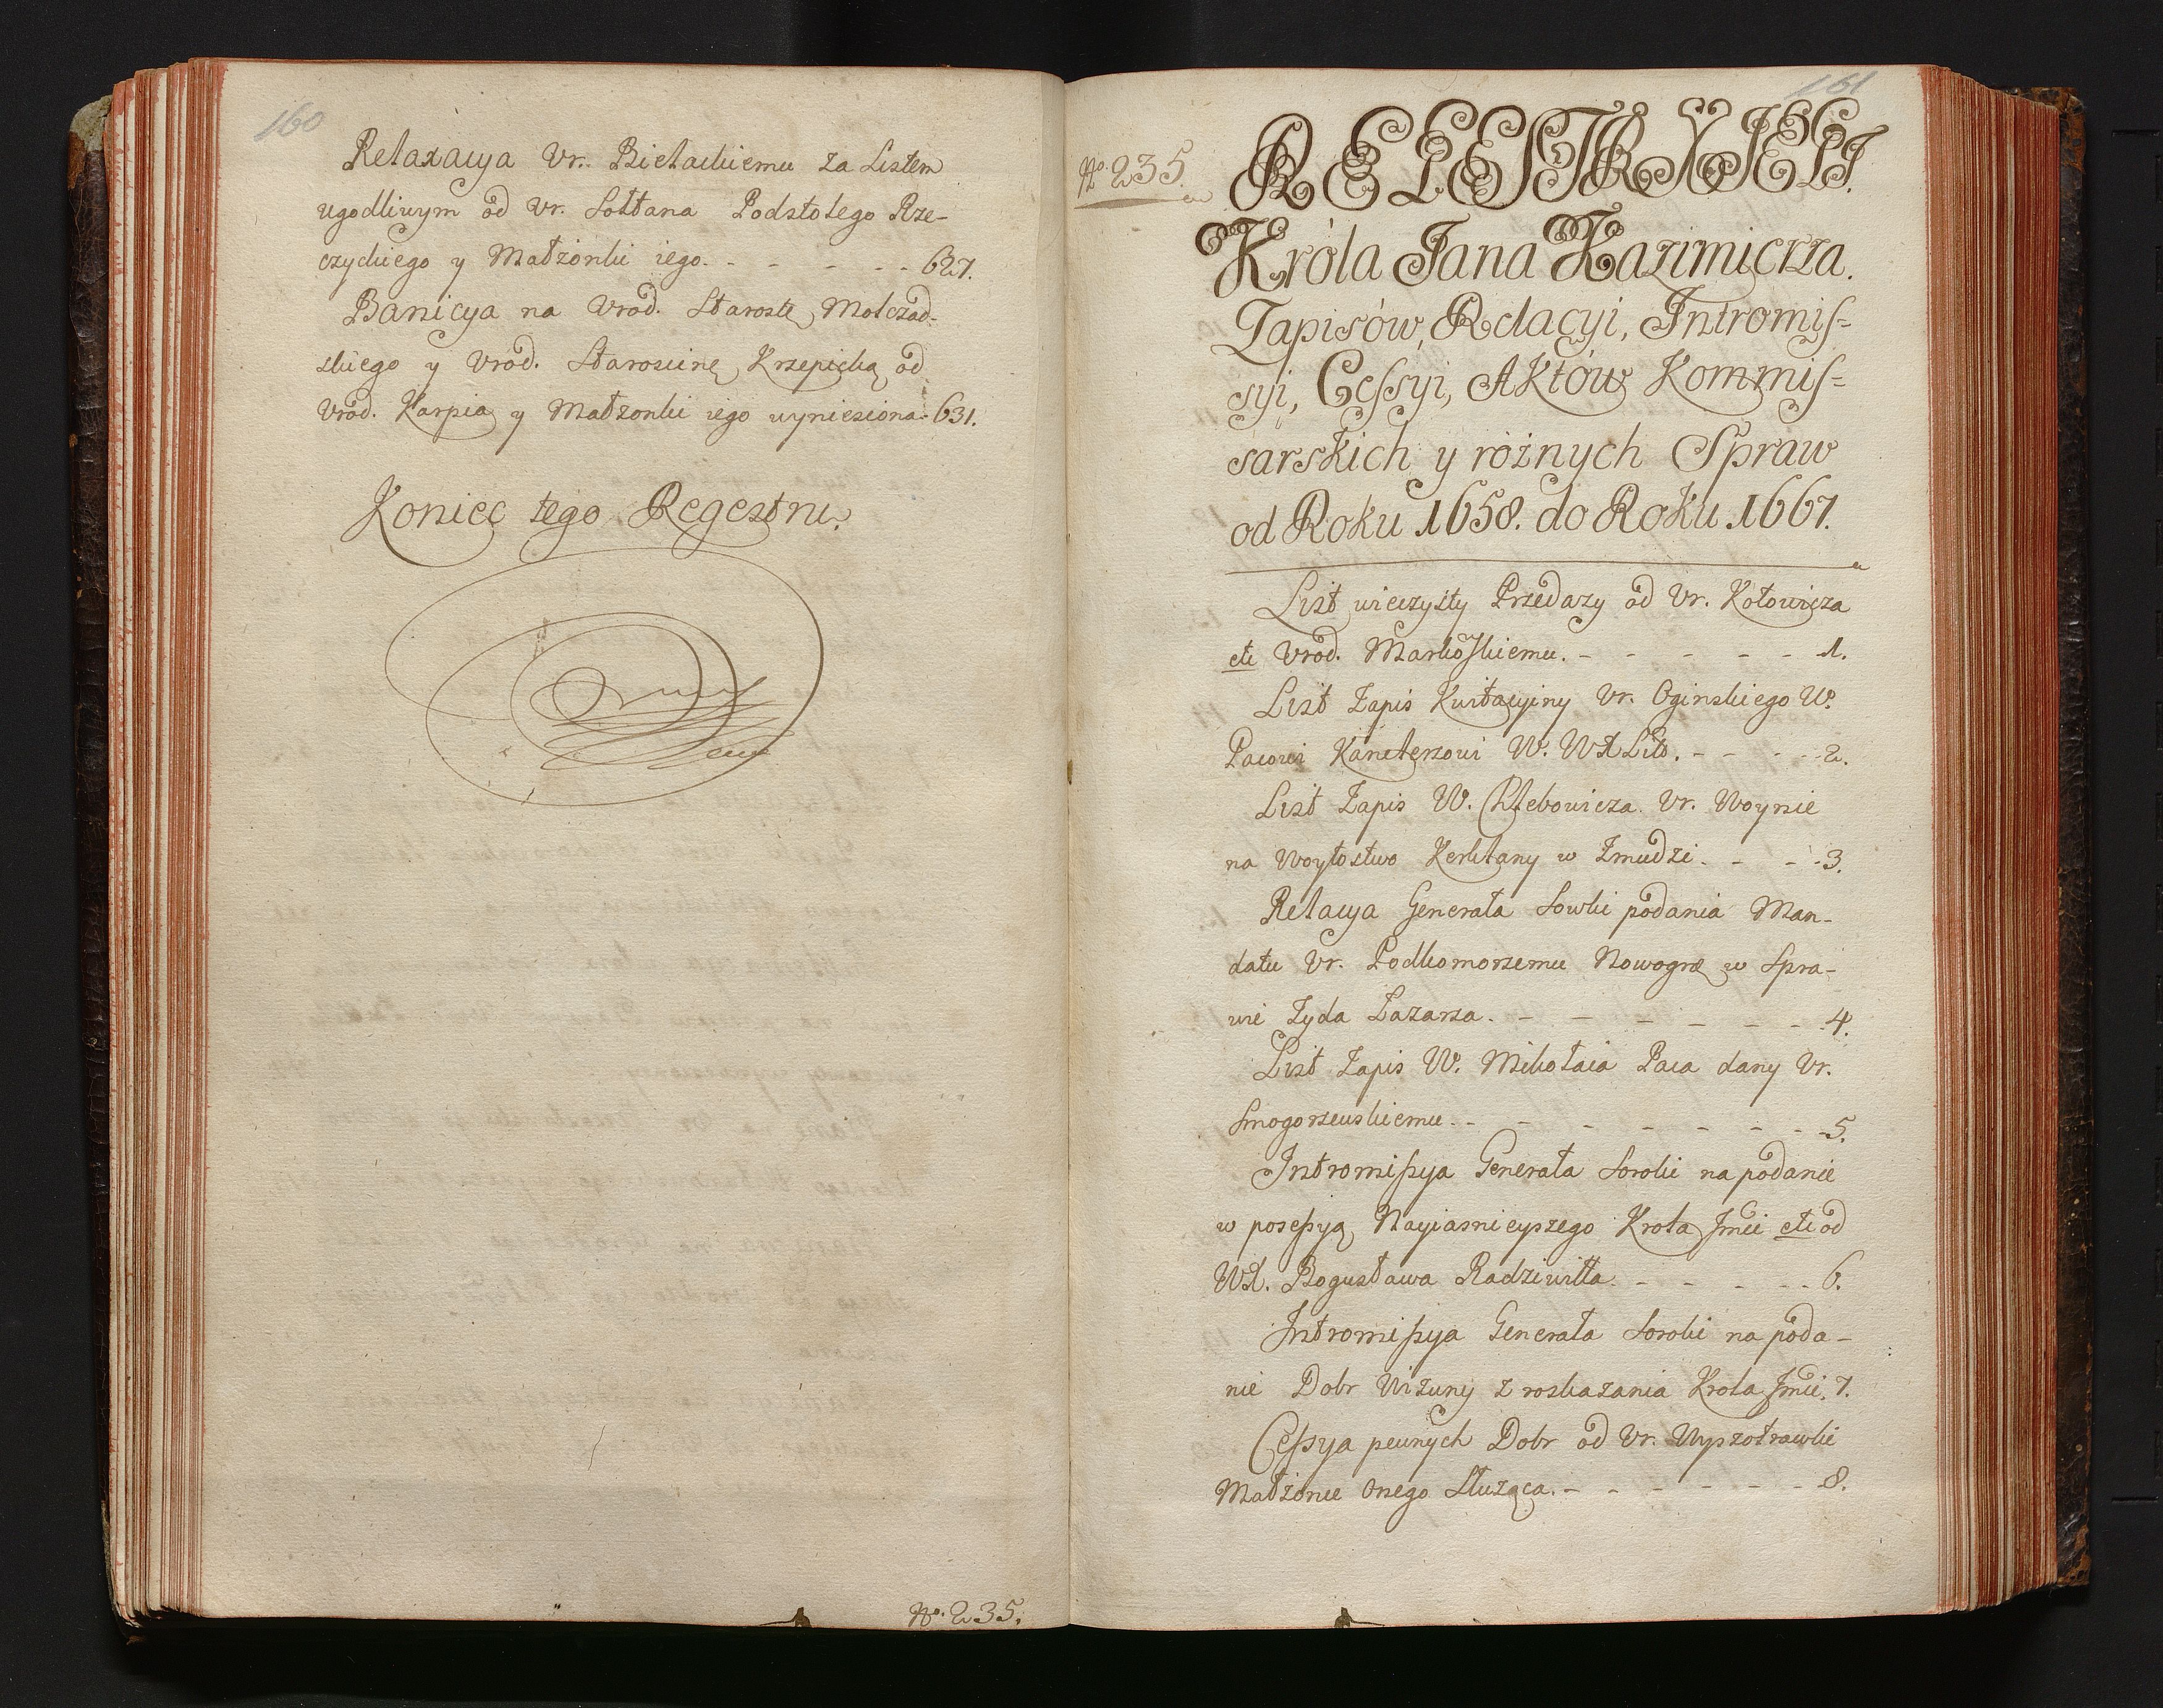 160
Relaxacya Ur. Bielackiemu za Listem
ugodliwym od Ur. Sołtana Podstolego Rze-
czyckiego y Małżonki iego. - - - - - 627.
Banicya na Urod. Starostę Mołczad-
skiego y Urod. Starościnę Krzepicką od
Urod. Karpia y Małżonki iego wyniesiona - 631.
Koniec tego Regestru.
No. 235.
161
No. 235.
REIESTR XIĘGI
Króla Jana Kazimierza.
Zapisów, Relacyi, Intromis=
syi, Cessyi, Aktów Kommis=
sarskich y różnych Spraw
od Roku 1658. do Roku 1667.
List wieczysty Przedazy od Ur. Kotowicza
etc Urod. Markoskiemu. - - - - - 1.
List Zapis Kwitacyiny Ur. Oginskiego W.
Pacowi Kanclerzowi W. WXLitt. - - - - 2.
List Zapis W. Chlebowicza Ur. Woynie
na Woytostwo Kerklany w Zmudzi. - - - 3.
Relacya Generała Sowki podania Man-
datu Ur. Podkomorzemu Nowogrc w Spra-
wie Zyda Łazarza. - - - - - - 4.
List Zapis W. Mikołaia Paca dany Ur.
Smogorzewskiemu. - - - - - - - 5.
Intromissya Generała Soroki na podanie
w posessyą Nayiasnieyszego Krola Jmci etc od
WX. Bogusława Radziwiłła. - - - - - 6.
Intromissya Generała Soroki na poda-
nie Dobr Wizuny z roskazania Krola Jmci. 7.
Cessya pewnych Dobr od Ur.
Małżonce Onego Służąca. - - - - - - 8.